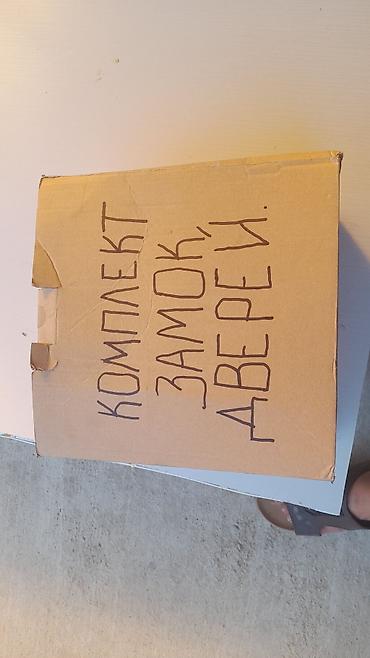 КОМПЛЕКТ
ЗАМОК,
ДВЕРЕЙ.